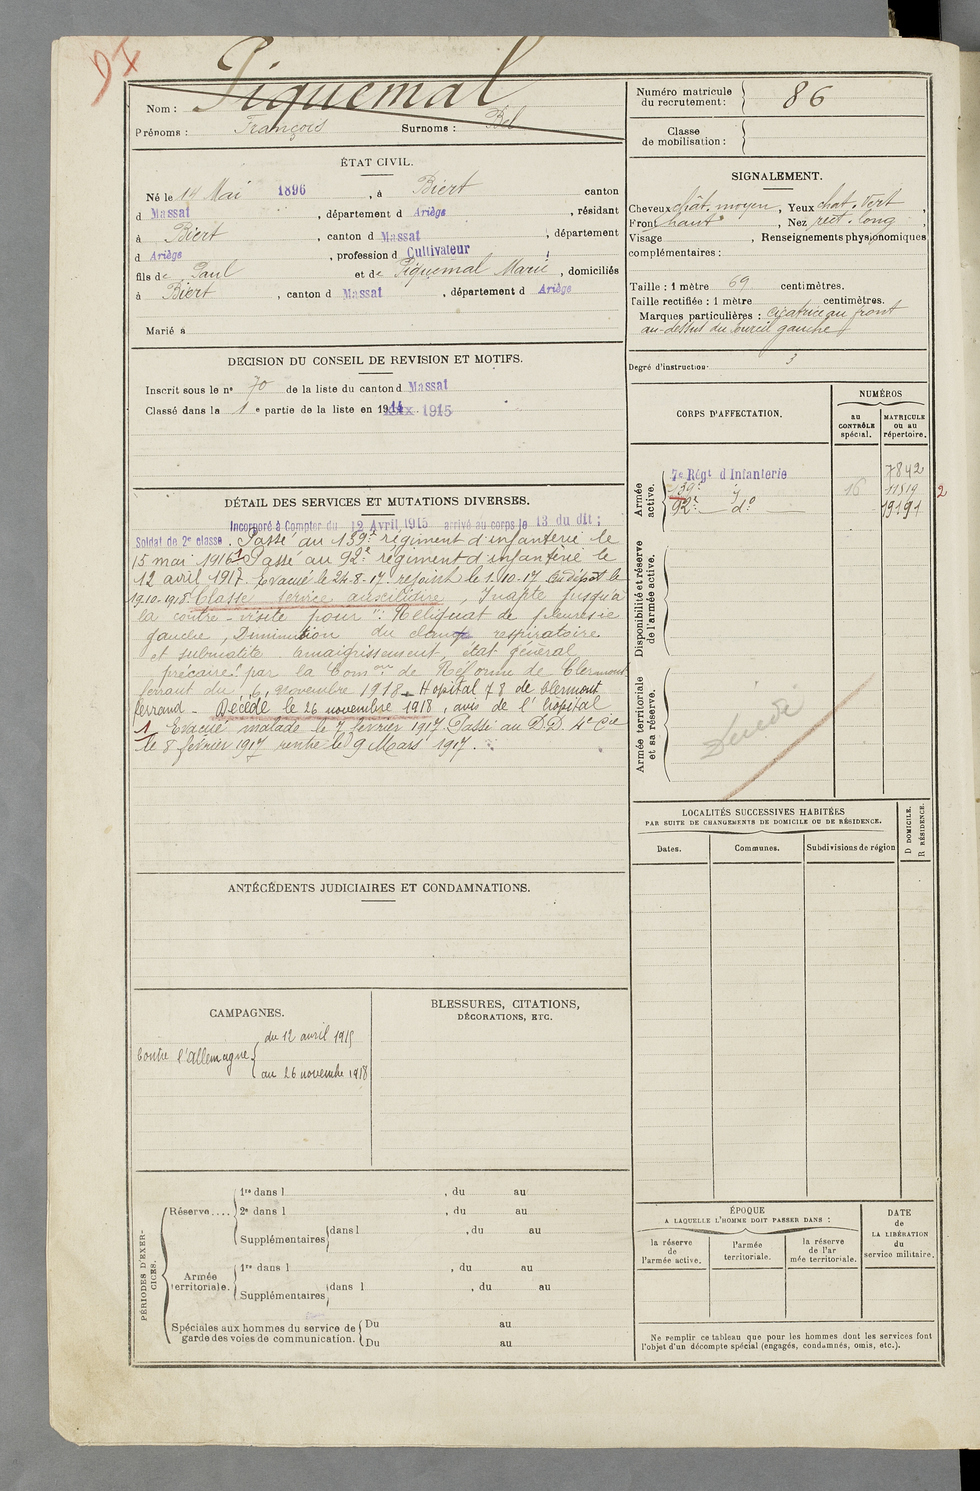 Piquemal
Nom :
Prénoms : François Surnoms : Bel
Numéro matricule
du recrutement : 86
Classe
de mobilisation :
ÉTAT CIVIL.
Né le 14 Mai 1896, à Biert canton
d Massat, département d Ariège, résidant
à Biert, canton d Massat, département
d Ariège, profession d Cultivateur
fils de Paul et de Piquemal Marie, domiciliés
à Biert, canton d Massat, département d Ariège
Marié à
SIGNALEMENT.
Cheveux chât. moyen, Yeux chat. vert,
Front haut, Nez rect. long,
Visage, Renseignements physionomiques
complémentaires :
Taille : 1 mètre 69 centimètres.
Taille rectifiée : 1 mètre centimètres.
Marques particulières : cicatrice au front
au-dessus du sourcil gauche
Degré d'instruction : 3
DÉCISION DU CONSEIL DE REVISION ET MOTIFS.
Inscrit sous le n° 70 de la liste du canton d Massat
Classé dans la 1 e partie de la liste en 1914 1915
DÉTAIL DES SERVICES ET MUTATIONS DIVERSES.
Incorporé à Compter du 12 Avril 1915 arrivé au corps le 13 du dit ;
Soldat de 2e classe. Passé au 159e régiment d'infanterie le
15 mai 1916 1 Passé au 92e régiment d'infanterie le
12 avril 1917. Evacué le 24.8.17 rejoint le 1.10.17 Au dépôt le
19.10.1918 Classé service auxiliaire, Inapte jusqu'à
la contre-visite pour : "Reliquat de pleurésie
gauche, Diminution du champ respiratoire
et submatité amaigrissement, état général
précaire" par la Com on de Réforme de Clermont
ferrant du 6 novembre 1918. Hopital 78 de Clermont
ferrand - Décédé le 26 novembre 1918, avis de l'hôpital
1 Evacué malade le 7 février 1917. Passé au D.D. 4e Cie
le 8 février 1917 rentré le 9 Mars 1917.
CORPS D'AFFECTATION.
NUMÉROS
au
CONTRÔLE
spécial.
MATRICULE
ou au
répertoire.
Armée
active.
7e Régt d'Infanterie 7842
159e 16 11519 2
92e — do — 19191
Disponibilité et réserve
de l'armée active.
Armée territoriale
et sa réserve.
Décédé
LOCALITÉS SUCCESSIVES HABITÉES
PAR SUITE DE CHANGEMENTS DE DOMICILE OU DE RÉSIDENCE.
Dates. Communes. Subdivisions de région
D DOMICILE.
R RÉSIDENCE.
ANTÉCÉDENTS JUDICIAIRES ET CONDAMNATIONS.
CAMPAGNES.
Contre l'allemagne
du 12 avril 1915
au 26 novembre 1918
BLESSURES, CITATIONS,
DÉCORATIONS, ETC.
PÉRIODES D'EXER-
CICES.
Réserve....
1re dans l , du au
2e dans l , du au
Supplémentaires dans l , du au
Armée
territoriale.
1re dans l , du au
Supplémentaires dans l , du au
Spéciales aux hommes du service de
garde des voies de communication.
Du au
Du au
ÉPOQUE
A LAQUELLE L'HOMME DOIT PASSER DANS :
la réserve
de
l'armée active.
l'armée
territoriale.
la réserve
de l'ar
mée territoriale.
DATE
de
LA LIBÉRATION
du
service militaire.
Ne remplir ce tableau que pour les hommes dont les services font
l'objet d'un décompte spécial (engagés, condamnés, omis, etc.).